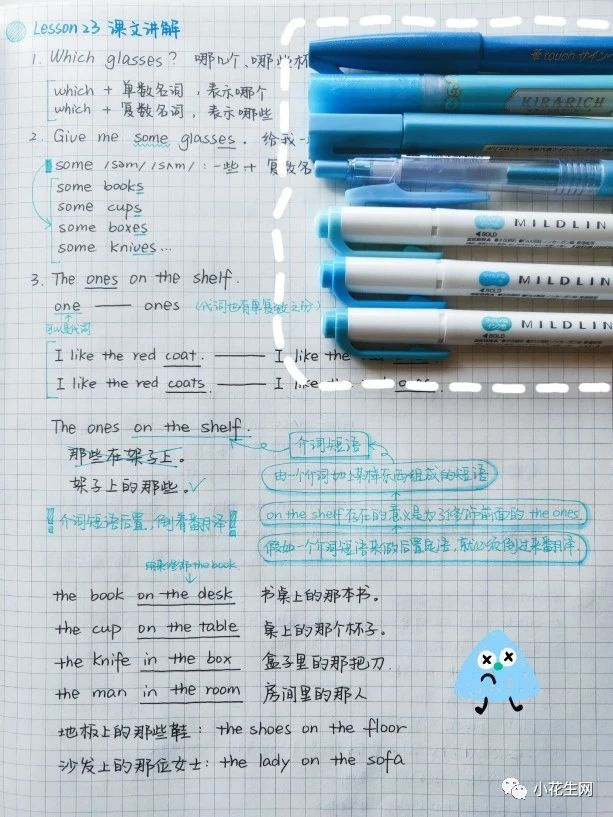 Lesson 23 课文讲解
1. Which glasses? 哪几个、哪些杯
which + 单数名词，表示哪个
which + 复数名词，表示哪些
2. Give me some glasses. 给我一
some /səm/ /sʌm/：一些 + 复数名
some books
some cups
some boxes
some knives...
3. The ones on the shelf.
one —— ones (代词也有单复数之分)
可以是代词
I like the red coat. —— I like the
I like the red coats. —— I like the
The ones on the shelf.
介词短语
那些在架子上。
由一个介词加上某样东西组成的短语
架子上的那些。✓
on the shelf存在的意义是为了修饰前面的 the ones
介词短语后置,倒着翻译
假如一个介词短语来做后置定语,就必须倒过来翻译.
用来修饰 the book
the book on the desk 书桌上的那本书。
the cup on the table 桌上的那个杯子。
the knife in the box 盒子里的那把刀.
the man in the room 房间里的那人
地板上的那些鞋：the shoes on the floor
沙发上的那位女士：the lady on the sofa
touch サイン
KIRARICH
MILDLIN
BOLD
MILDLIN
BOLD
MILDLIN
BOLD
小花生网